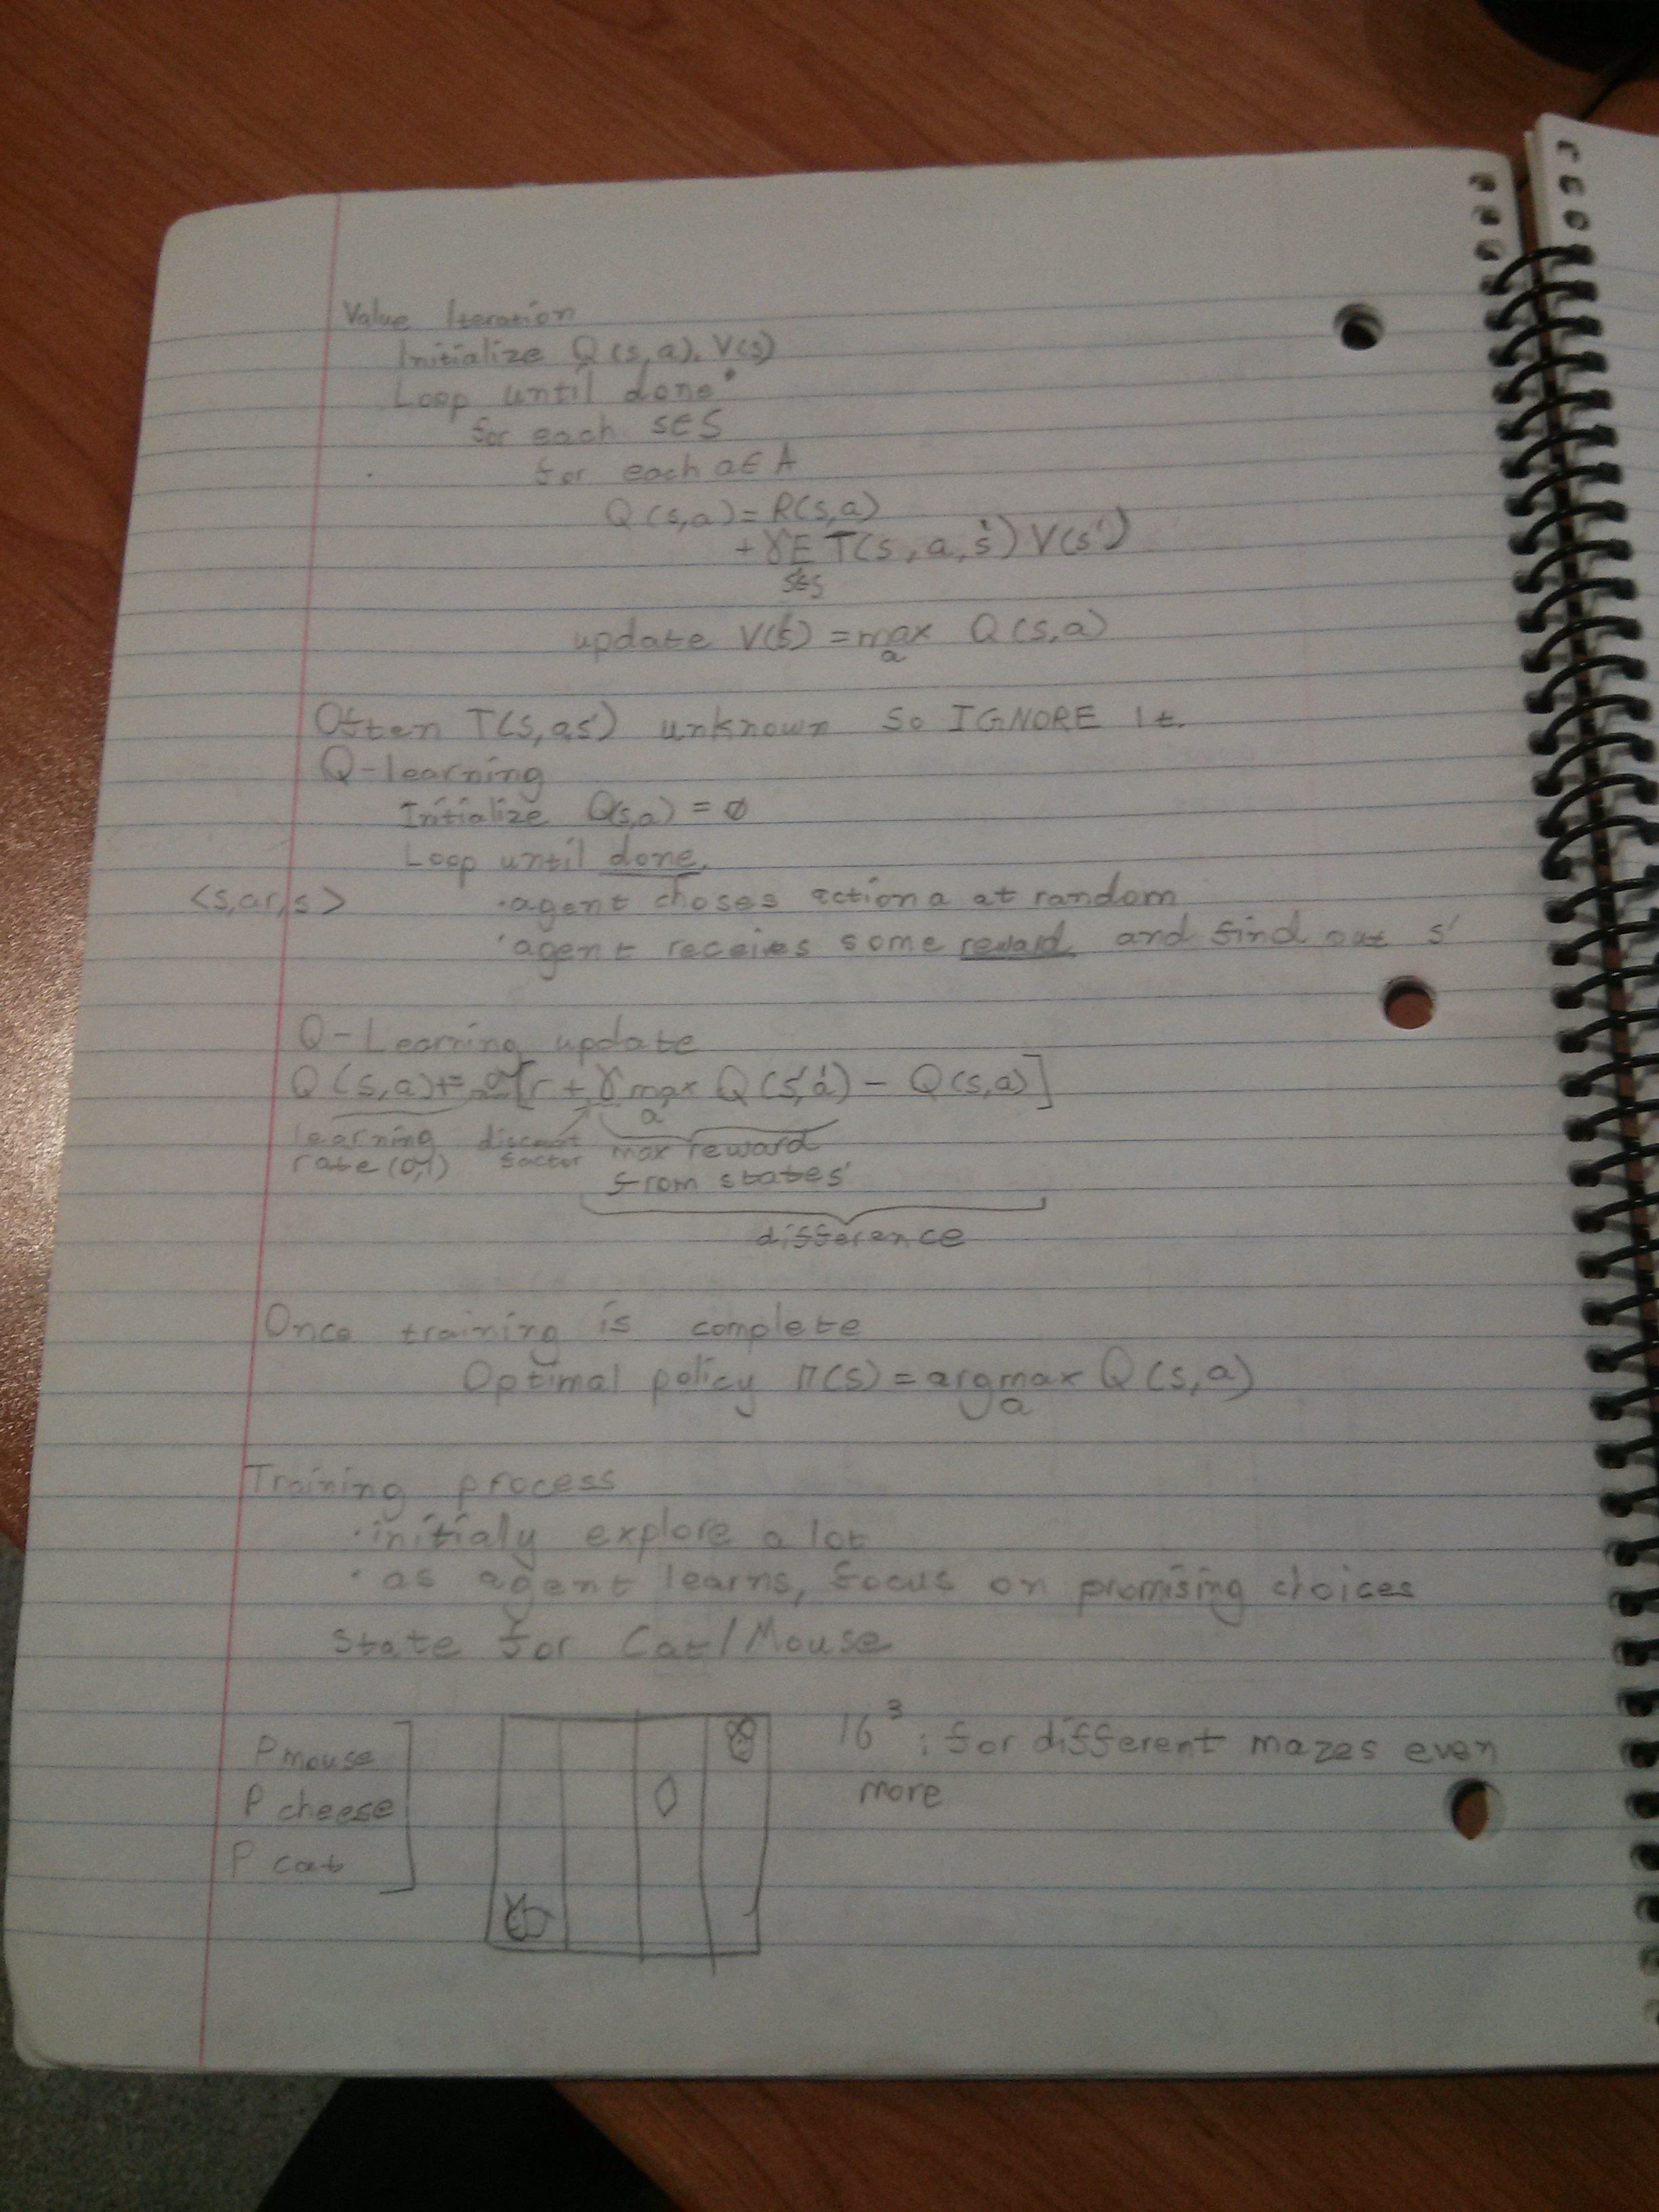 Value Iteration
Initialize Q(s,a), V(s)
Loop until done
for each s∈S
for each a∈A
Q(s,a)=R(s,a)
+γE T(s,a,s')V(s')
s'∈S
update V(s)=max Q(s,a)
a
Often T(s,as') unknown so IGNORE It.
Q-learning
Initialize Q(s,a) = ∅
Loop until done.
<s,ar,s> ·agent choses action a at random
·agent receives some reward and find out s'
Q-Learning update
Q(s,a)+= α[r+γ max Q(s',a')- Q(s,a)]
a
learning discount max reward
rate (0,1) factor from states'
difference
Once training is complete
Optimal policy π(s)=argmax Q(s,a)
a
Training process
·initialy explore a lot
·as agent learns, focus on promising choices
State for Cat/Mouse
P mouse
P cheese
P cat
16³ : for different mazes even
more